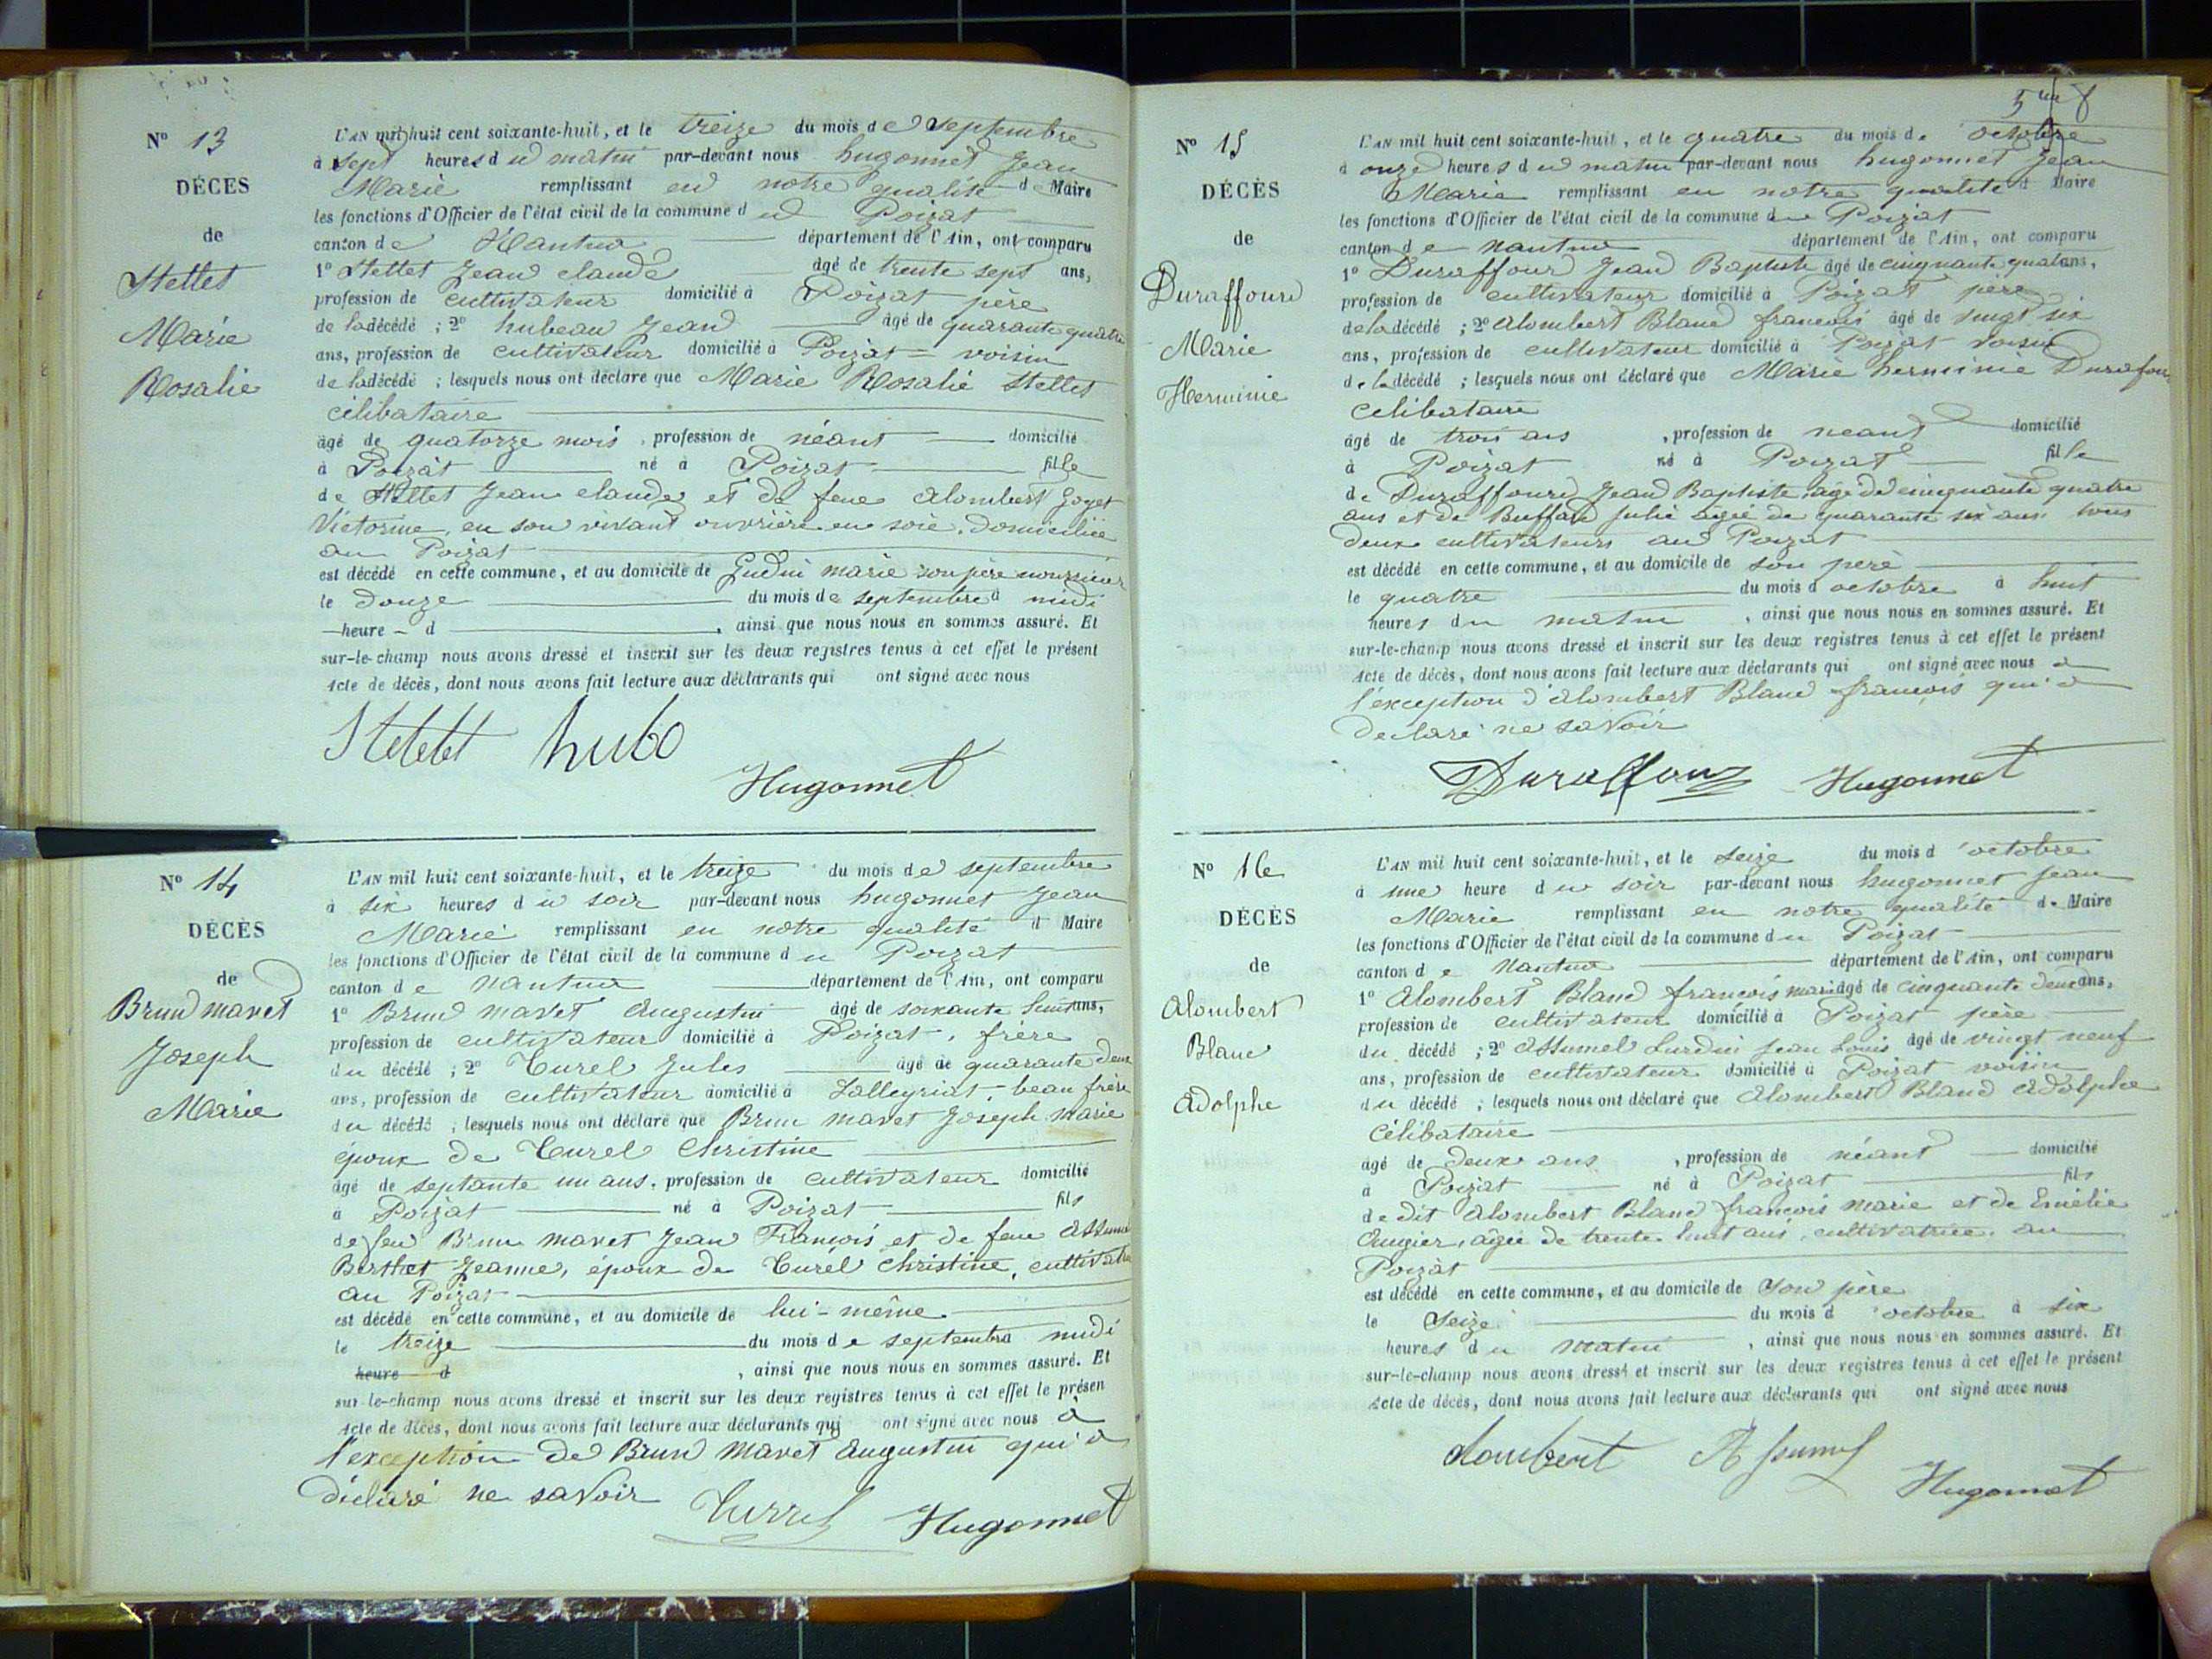 N° 13
DÉCES
de
Stettet
Marie
Rosalie
L'AN mil huit cent soixante-huit, et le treize du mois de septembre
à sept heures du matin par-devant nous hugonnet Jean
Marie remplissant en notre qualité de Maire
les fonctions d'Officier de l'état civil de la commune du Poizat
canton de Nantua département de l'Ain, ont comparu
1° Stettet Jean claude âgé de trente sept ans,
profession de cultivateur domicilié à Poizat père
de la décédé ; 2° hubeau Jean âgé de quarante quatre
ans, profession de cultivateur domicilié à Poizat = voisin
de la décédé ; lesquels nous ont déclaré que Marie Rosalie Stettet
célibataire
âgé de quatorze mois, profession de néant domicilié
à Poizat né à Poizat fille
de Stettet Jean claude et de feue alombert Goyet
Victorine, en son vivant ouvrière en soie, domiciliée
au Poizat
est décédé en cette commune, et au domicile de Gudin marie son père nourricier
le douze du mois de septembre à midi
heure d , ainsi que nous nous en sommes assuré. Et
sur-le-champ nous avons dressé et inscrit sur les deux registres tenus à cet effet le présent
Acte de décès, dont nous avons fait lecture aux déclarants qui ont signé avec nous
Stetetet hubo
Hugonnet
N° 14
DÉCÈS
de
Brun mavet
Joseph
Marie
L'AN mil huit cent soixante-huit, et le treize du mois de septembre
à six heures du soir par-devant nous hugonnet Jean
Marie remplissant en notre qualité d Maire
les fonctions d'Officier de l'état civil de la commune du Poizat
canton de Nantua département de l'Ain, ont comparu
1° Brun mavet Augustin âgé de soixante huit ans,
profession de cultivateur domicilié à Poizat, frère
du décédé ; 2° Turel Jules âgé de quarante deux
ans, profession de cultivateur domicilié à Lalleyriat, beau frère
du décédé ; lesquels nous ont déclaré que Brun mavet Joseph marie
époux de Turel Christine
âgé de septante un ans, profession de cultivateur domicilié
à Poizat né à Poizat fils
de feu Brun mavet Jean François et de feue Assumel
Berthet Jeanne, époux de Turel Christine, cultivatrice
au Poizat
est décédé en cette commune, et au domicile de lui-même
le treize du mois de septembre midi
heure d , ainsi que nous nous en sommes assuré. Et
sur-le-champ nous avons dressé et inscrit sur les deux registres tenus à cet effet le présen
Acte de décès, dont nous avons fait lecture aux déclarants qui ont signé avec nous à
l'exception de Brun mavet Augustin qui a
déclaré ne savoir Turrel Hugonnet
N° 15
DÉCÈS
de
Duraffourd
Marie
Herminie
L'AN mil huit cent soixante-huit, et le quatre du mois d. octobre
à onze heures du matin par-devant nous hugonnet Jean
Marie remplissant en notre qualité d Maire
les fonctions d'Officier de l'état civil de la commune du Poizat
canton de Nantua département de l'Ain, ont comparu
1° Duraffour Jean Baptiste âgé de cinquante quat ans,
profession de cultivateur domicilié à Poizat père
de la décédé ; 2° alombert Blanc françois âgé de vingt six
ans, profession de cultivateur domicilié à Poizat voisin
de la décédé ; lesquels nous ont déclaré que Marie herminie Durafour
célibataire
âgé de trois ans , profession de neant domicilié
à Poizat né à Poizat fille
de Duraffourd Jean Baptiste, âgé de cinquante quatre
ans et de Buffard Julie agée de quarante six ans tous
deux cultivateurs au Poizat
est décédé en cette commune, et au domicile de son père
le quatre du mois d octobre à huit
heures du matin , ainsi que nous nous en sommes assuré. Et
sur-le-champ nous avons dressé et inscrit sur les deux registres tenus à cet effet le présent
Acte de décès, dont nous avons fait lecture aux déclarants qui ont signé avec nous a
l'exception d'alombert Blanc françois qui a
declaré ne savoir
Duraffour Hugonnet
N° 16
DÉCÈS
de
Alombert
Blanc
Adolphe
L'AN mil huit cent soixante-huit, et le seize du mois d'octobre
à une heure du soir par-devant nous hugonnet Jean
Marie remplissant en notre qualité de Maire
les fonctions d'Officier de l'état civil de la commune du Poizat
canton de Nantua département de l'Ain, ont comparu
1° Alombert Blanc françois mari âgé de cinquante deux ans,
profession de cultivateur domicilié à Poizat père
du décédé ; 2° Assumel Lurdin Jean Louis âgé de vingt neuf
ans, profession de cultivateur domicilié à Poizat voisin
du décédé ; lesquels nous ont déclaré que Alombert Blanc Adolphe
célibataire
âgé de deux ans , profession de néant domicilié
à Poizat né à Poizat fils
de dit Alombert Blanc françois marie et de Emélie
Augier, agée de trente huit ans, cultivatrice, au
Poizat
est décédé en cette commune, et au domicile de son père
le seize du mois d'octobre à six
heures du matin , ainsi que nous nous en sommes assuré. Et
sur-le-champ nous avons dressé et inscrit sur les deux registres tenus à cet effet le présent
Acte de décès, dont nous avons fait lecture aux déclarants qui ont signé avec nous
alombert Assumel
Hugonnet